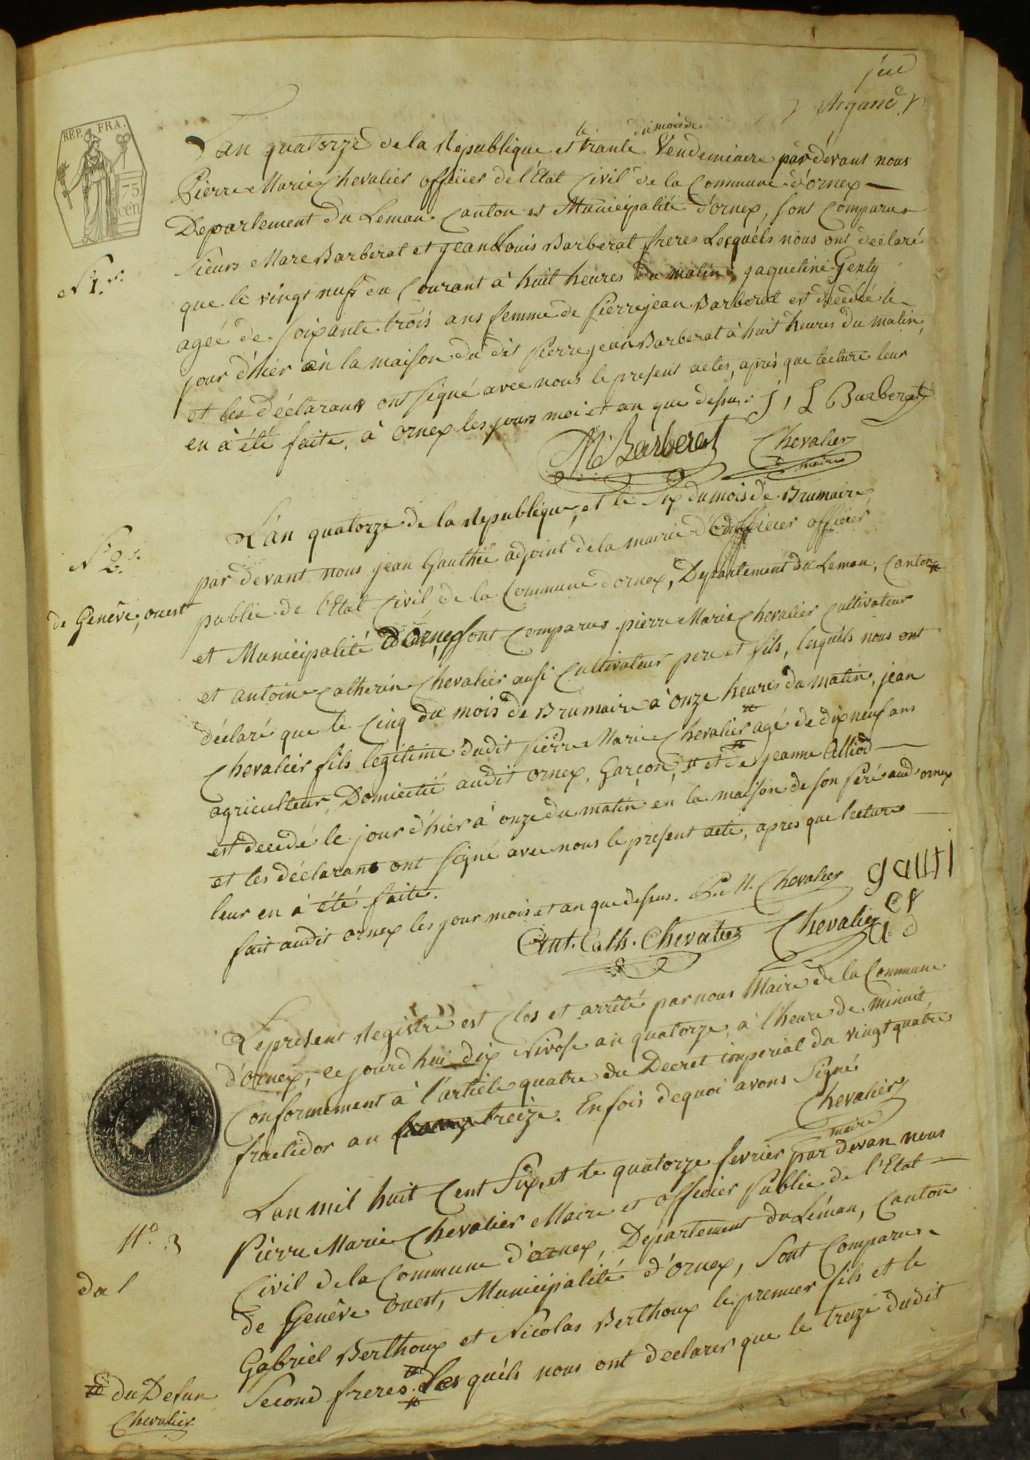 jué
Argand
REP. FRA.
75
cen
L'an quatorze de la Republique et le trante du mois de Vendemiaire par devant nous
Pierre Marie Chevalier officier de l'Etat Civil de la Commune d'ornex
Departement du Leman Canton et Municipalité d'ornex, sont Comparus
Sieurs Marc Barberat et jean Louis Barberat freres Lesquels nous ont déclaré
N 1.er
que le vingt nuf du Courant à huit heures du matin, jaqueline Genty
agée de soixante trois ans femme de pierre jean Barberat est décédée le
jour d'hier en la maison du dit pierre jean Barberat à huit heures du matin,
et les déclarans ont signé avec nous le present acte, après que lecture leur
en à été faite, à ornex les jours moi et an que dessus: J, L Barberat
M Barberat Chevalier
maire
N 2.
L'an quatorze de la Republique, et le six du mois de Brumaire
par devant nous jean Gauthié adjoint de la mairie officier
de Genêve, ouest
public de l'Etat Civil de la Commune d'ornex, Departement du Leman, Canton
et Municipalité d'ornex sont Comparus pierre Marie Chevalier Cultivateur
et antoine Catherin Chevalier ausi Cultivateur pere et fils, lesquels nous ont
déclaré que le Cinq du mois de Brumaire à onze heures du matin, jean
Chevalier fils légitime dudit pierre Marie Chevalier agé de dix neuf ans
agriculteur, Domicilié audit ornex, Garçon, et de jeanne Alliod
est decedé le jour d'hier à onze du matin en la maison de son péré aud ornex
et les déclarans ont signé avec nous le present acte, apres que lecture
leur en à été faite.
fait audit ornex les jour mois et an que dessus. P. M. Chevalier gauti
er
Ant. Cath. Chevalier Chevalier ad
Le present Registre est Clos et arrêté par nous Maire de la Commune
d'ornex, ce jourd'hui dix Nivose an quatorze, à l'heure de minuit,
Conformement à l'article quatre du Decret imperial du vingt quatre
fructidor an treize. En fois de quoi avons Signé
Chevalier
maire
L'an mil huit Cent Six, et le quatorze fevrier par devan nous
N.o 3
Pierre Marie Chevalier Maire et officier Public de l'Etat
Civil de la Commune d'ornex, Département du Léman, Canton
de Genêve ouest, Municipalité d'ornex, Sont Comparus
Gabriel Berthoux et Nicolas Berthoux le premier fils et le
Second freres Lesquéls nous ont declarer que le treize dudit
du Defun
Chevalier